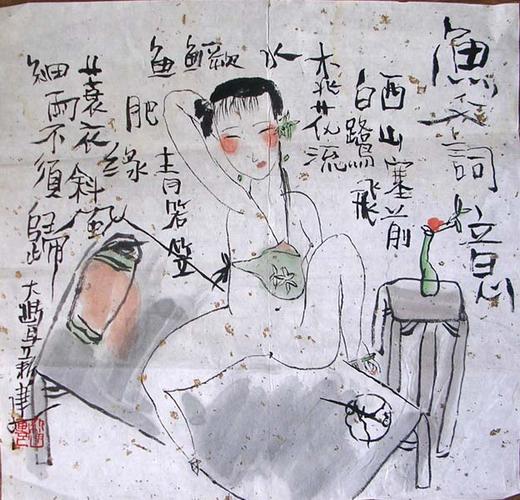 漁父詞意
西山塞前
白鷺飛
桃花流
水
鱖
鱼
肥
青箬笠
綠
蓑衣斜風
細雨不須歸